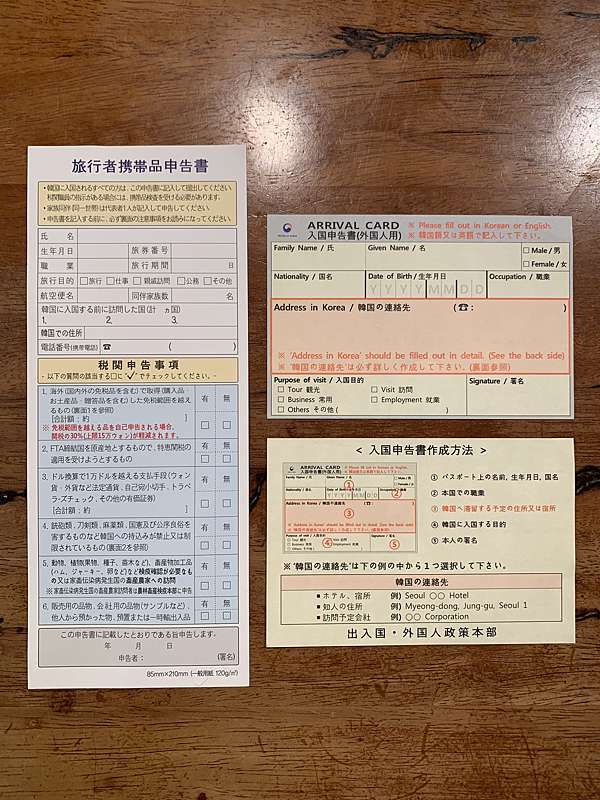 旅行者携帯品申告書
・韓国に入国されるすべての方は、この申告書に記入して提出してください。
税関職員の指示がある場合には、携帯品検査を受ける必要があります。
・家族同伴(同一世帯)は代表者1人が記入して申告してください。
・申告書を記入する前に、必ず裏面の注意事項をお読みになってください。
氏 名
生年月日 旅券番号
職 業 旅行期間 日
旅行目的 □旅行 □仕事 □親戚訪問 □公務 □その他
航空便名 同伴家族数 名
韓国に入国する前に訪問した国(計 ヵ国)
1. 2. 3.
韓国での住所
電話番号(携帯電話) ☎ ( )
税関申告事項
- 以下の質問の該当する□に"✓"でチェックしてください。-
1. 海外(国内外の免税品を含む)で取得(購入品、 有 無
お土産品・贈答品を含む)した免税範囲を越え
るもの(裏面1を参照)
[合計額:約 ]
※ 免税範囲を越える品を自己申告される場合、 □ □
関税の30%(上限15万ウォン)が軽減されます。
2. FTA締結国を原産地とするもので、特恵関税の 有 無
適用を受けようとするもの □ □
3. ドル換算で1万ドルを越える支払手段(ウォン 有 無
貨・外貨など法定通貨、自己宛小切手、トラベ
ラーズチェック、その他の有価証券)
[合計額:約 ] □ □
4. 銃砲類、刀剣類、麻薬類、国憲及び公序良俗を 有 無
害するものなど韓国への持込みが禁止又は制
限されているもの(裏面2を参照) □ □
5. 動物、植物(果物、種子、苗木など)、畜産物加工品 有 無
(ハム、ジャーキー、卵など)など検疫確認が必要なも
の又は家畜伝染病発生国の畜産農家への訪問 □ □
※ 家畜伝染病発生国の畜産農家訪問者は農林畜産検疫本部に申告
6. 販売用の品物、会社用の品物(サンプルなど)、 有 無
他人から預かった物、預置または一時輸出入品 □ □
この申告書に記載したとおりである旨申告します。
年 月 日
申告者: (署名)
85mm×210mm (一般用紙 120g/㎡)
ARRIVAL CARD ※ Please fill out in Korean or English.
入国申告書(外国人用) ※ 韓国語又は英語で記入して下さい。
Family Name / 氏 Given Name / 名 □ Male / 男
□ Female / 女
Nationality / 国名 Date of Birth / 生年月日 Occupation / 職業
Y Y Y Y M M D D
Address in Korea / 韓国の連絡先 (☎: )
※ 'Address in Korea' should be filled out in detail. (See the back side)
※ '韓国の連絡先'は必ず詳しく作成して下さい。(裏面参照)
Purpose of visit / 入国目的 Signature / 署名
□ Tour 観光 □ Visit 訪問
□ Business 常用 □ Employment 就業
□ Others その他 ( )
< 入国申告書作成方法 >
ARRIVAL CARD ※ Please fill out in Korean or English.
入国申告書(外国人用) ※ 韓国語又は英語で記入して下さい。
Family Name / 氏 Given Name / 名 □ Male / 男
① □ Female / 女
Nationality / 国名 Date of Birth / 生年月日 Occupation / 職業
Y Y Y Y M M D D ②
Address in Korea / 韓国の連絡先 (☎: )
③
※ 'Address in Korea' should be filled out in detail. (See the back side)
※ '韓国の連絡先'は必ず詳しく作成して下さい。(裏面参照)
Purpose of visit / 入国目的 Signature / 署名
□ Tour 観光 □ Visit 訪問
□ Business 常用 ④ □ Employment 就業 ⑤
□ Others その他 ( )
① パスポート上の名前, 生年月日, 国名
② 本国での職業
③ 韓国へ滞留する予定の住所又は宿所
④ 韓国に入国する目的
⑤ 本人の署名
※ '韓国の連絡先'は下の例の中から1つ選択して下さい。
韓国の連絡先
■ ホテル、宿所 例) Seoul ○○ Hotel
■ 知人の住所 例) Myeong-dong, Jung-gu, Seoul 1
■ 訪問予定会社 例) ○○ Corporation
出入国・外国人政策本部